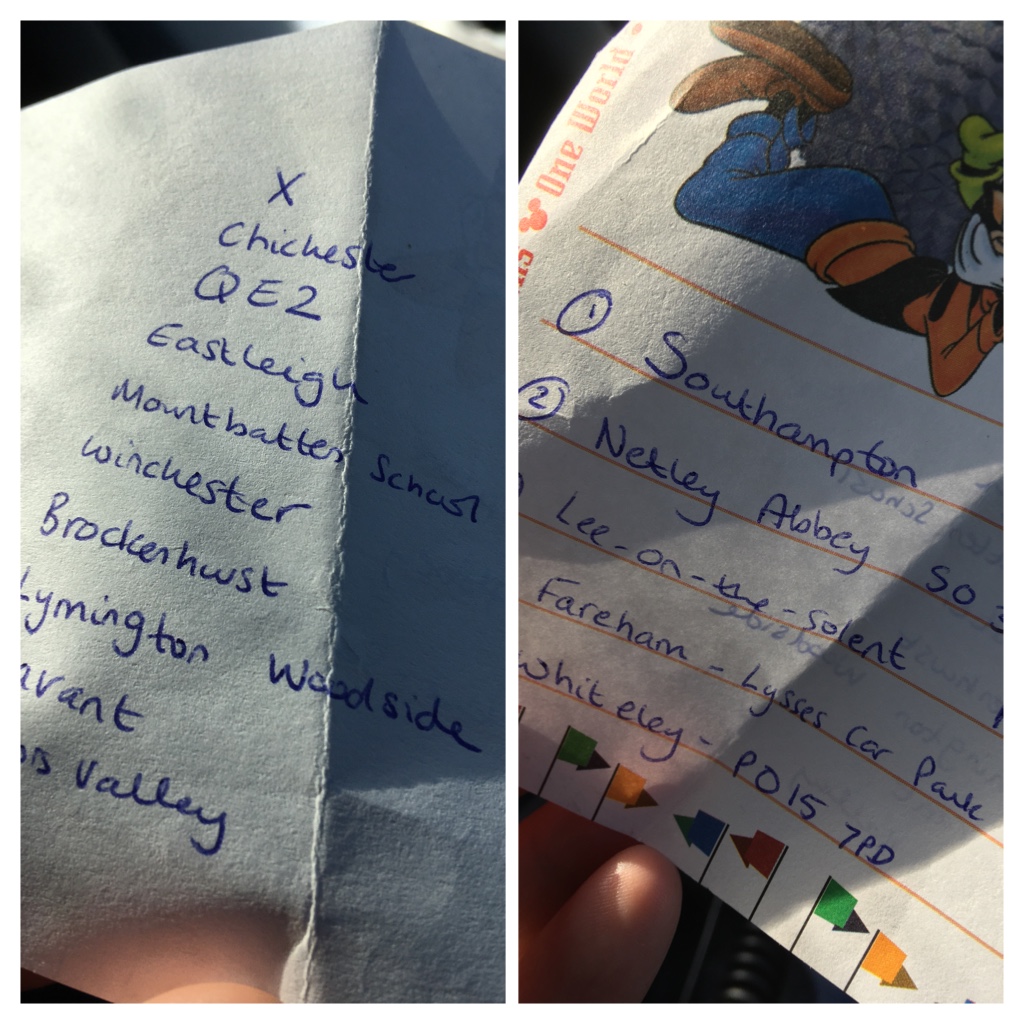 X
Chichester
QE2
Eastleigh
Mountbatten School
Winchester
Brockenhurst
Lymington Woodside
Valley
One World
① Southampton
② Netley Abbey SO
Lee-on-the-Solent
Fareham - Lysses Car Park
Whiteley - PO15 7PD